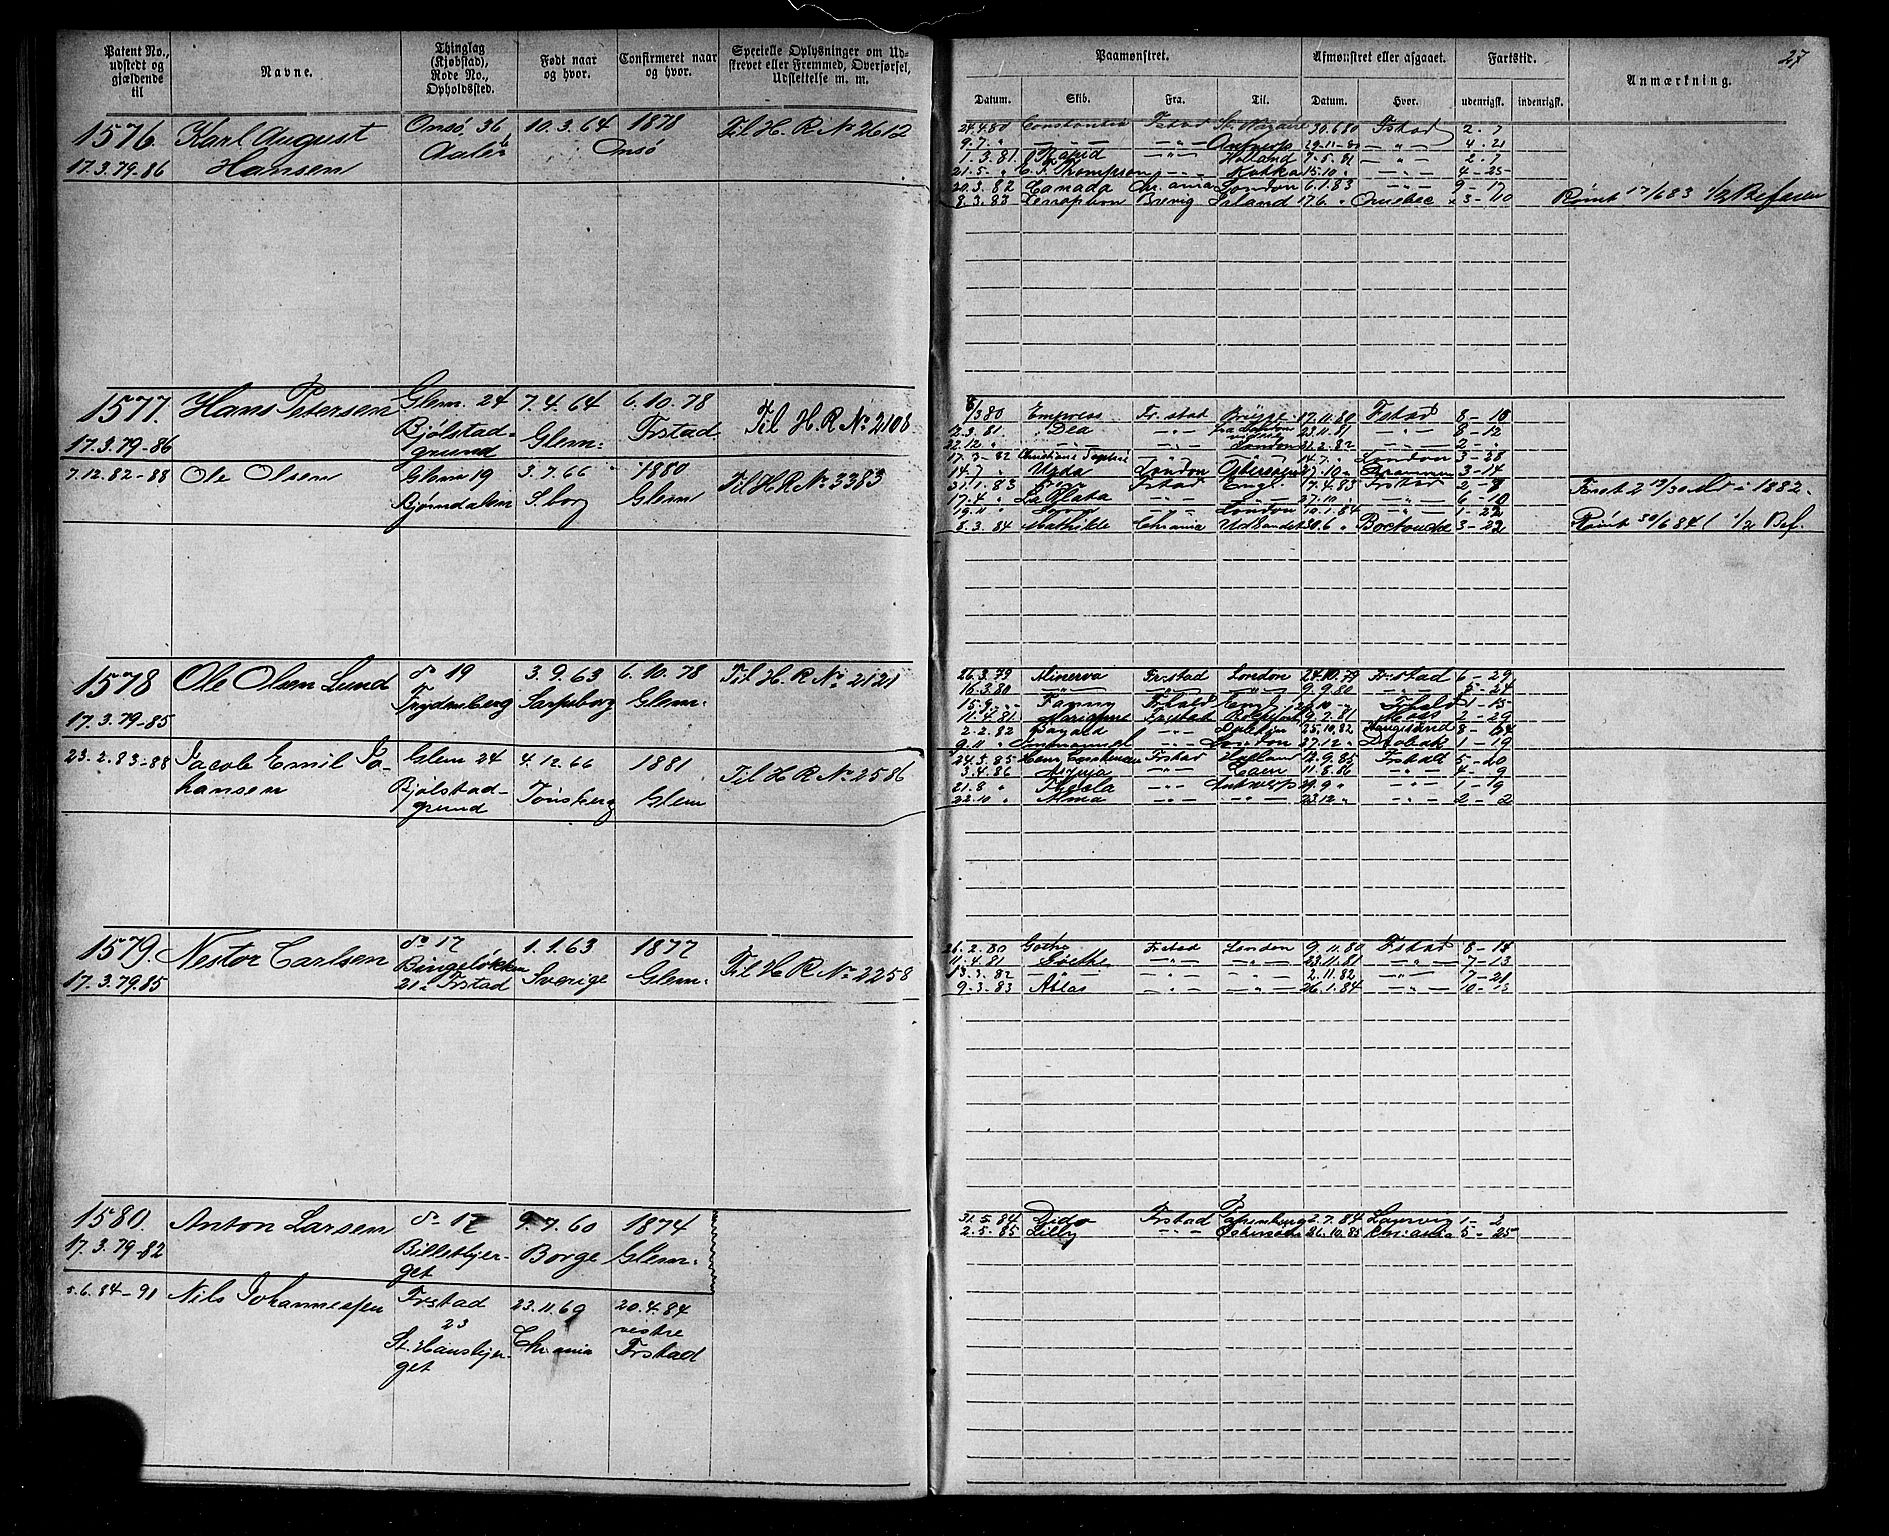 Patent No., udstedt og gjældende til
Navne.
Thinglag (Kjøbstad), Rode No., Opholdssted.
Født naar og hvor.
Confirmeret naar og hvor.
Specielle Oplysninger om Udskrevet eller Fremmed, Overførsel, Udslettelse m. m.
1576. Karl August Onsö, 36 10.3.64 1878 Til H. R. No 2612
17.3.79-86 Hansen Onsö
1577. Hans Petersen Glem. 24 7.4.64 6.10.78 Til H. R. No 2108
17.3.79-86 Bjölstad- Glem: Frstad
grund
7.12.82-88 Ole Olsen Glem 19 3.7.66 1880 Til H R No 3383
Bjørndalen S.borg Glem
1578 Ole Olsen Lund do 19 3.9.63 6.10.78 Til H. R. No 2121
17.3.79-85 Trydensberg Sarpsborg Glem.
23.2.83-88 Jacob Emil Jo- Glem 24 4.12.66 1881 Til H. R. No 2586
hansen Bjölstad- Tönsberg Glem
grund
1579. Nestor Carlsen do 17 1.1.63 1877 Til H. R. No 2258
17.3.79.85 Bingeløkken Sverige Glem.
21 Frstad
1580. Anton Larsen do 17 9.7.60 1874
17.3.79-82 Billetbjer- Borge Glem.
get
5.6.84-91 Nils Johannessen Frstad 23.11.69 20.4.84
23 Chr.ania vestre
St. Hansbjer- Frstad
get
27
Paamønstret.
Afmønstret eller afgaaet.
Fartstid.
Anmærkning.
Datum. Skib. Fra. Til. Datum. Hvor. udenrigsk. indenrigsk.
24.4.80 Constantia Fstad St. Nazaire 30.6.80 Fstad 2-7
9.7. " Antwerp 29-11-80 4-21
1.3.81 Rapid Holland 7-5.81 2-7
21.5 " C. F. Thompson Kotka 15.10 " 4-25
20.3.82 Canada Chr.ania London 6.1.83 9-17
8.3.83 Xenophon Brevig Irland 17.6 " Quebec 3-10 Rømt 17/6 83 1/2 Befaren
/380 Empress Fr.stad 17.11.80 Fstad 8-18
17.3.81 Dea fra London 23.11.81 8-12
22.12 " London 21.2.82 2-1
17-3-82 Christiane Sophie 14.7 " London 3-28
14.7 " Uzda London 27.10 " Drammen 3-14
31.1.83 Fstad Engl. 17.4.83 Frstad 2-8
17.4 " La Plata 27.10 " 6-10
19.11 " London 10.1.84 1-22
8.3.84 Mathilde Chr.ania Udlandet 30.6 " 3-22 Rømt 30/6 84 ( 1/2 Bef.
26.3.79 Minerva Fr.stad London 24.10.79 Fr.stad 6-29
16.3.80 9.9.80 5-24
15.9 Fanny Frstad Engl. Frstad 1-15
11.4.81 Fr.stad 9.2.81 Moss 2-29
2.2.82 25.10.82 8-24
9.11 " London 27.12 " Drøbak 1-19
24.3.85 Frstad Holland 12.9.85 Frstad 5-20
3.4.86 Caen 11.8.86 4-9
21.8 " Thecla Antwerp 29.9 " 1-9
22.10 " Alma 23.12 " 2-2
26.2.80 Gothe Fr.stad London 9.11.80 Fstad 8-14
11.4.81 Goethe 23.11.81 7-13
13.3.82 2.11.82 7-21
9.3.83 Atlas 26.1.84 10-13
31.5.84 Dido Frstad Papenburg 2.7.84 Laurvig 1-2
2.5.85 Lilly 26.10.85 Chr.ania 5-25